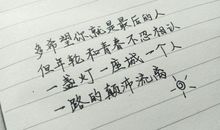 多希望你就是最后的人
但年轮和青春不忍相认
一盏灯一座城一个人
一路的颠沛流离